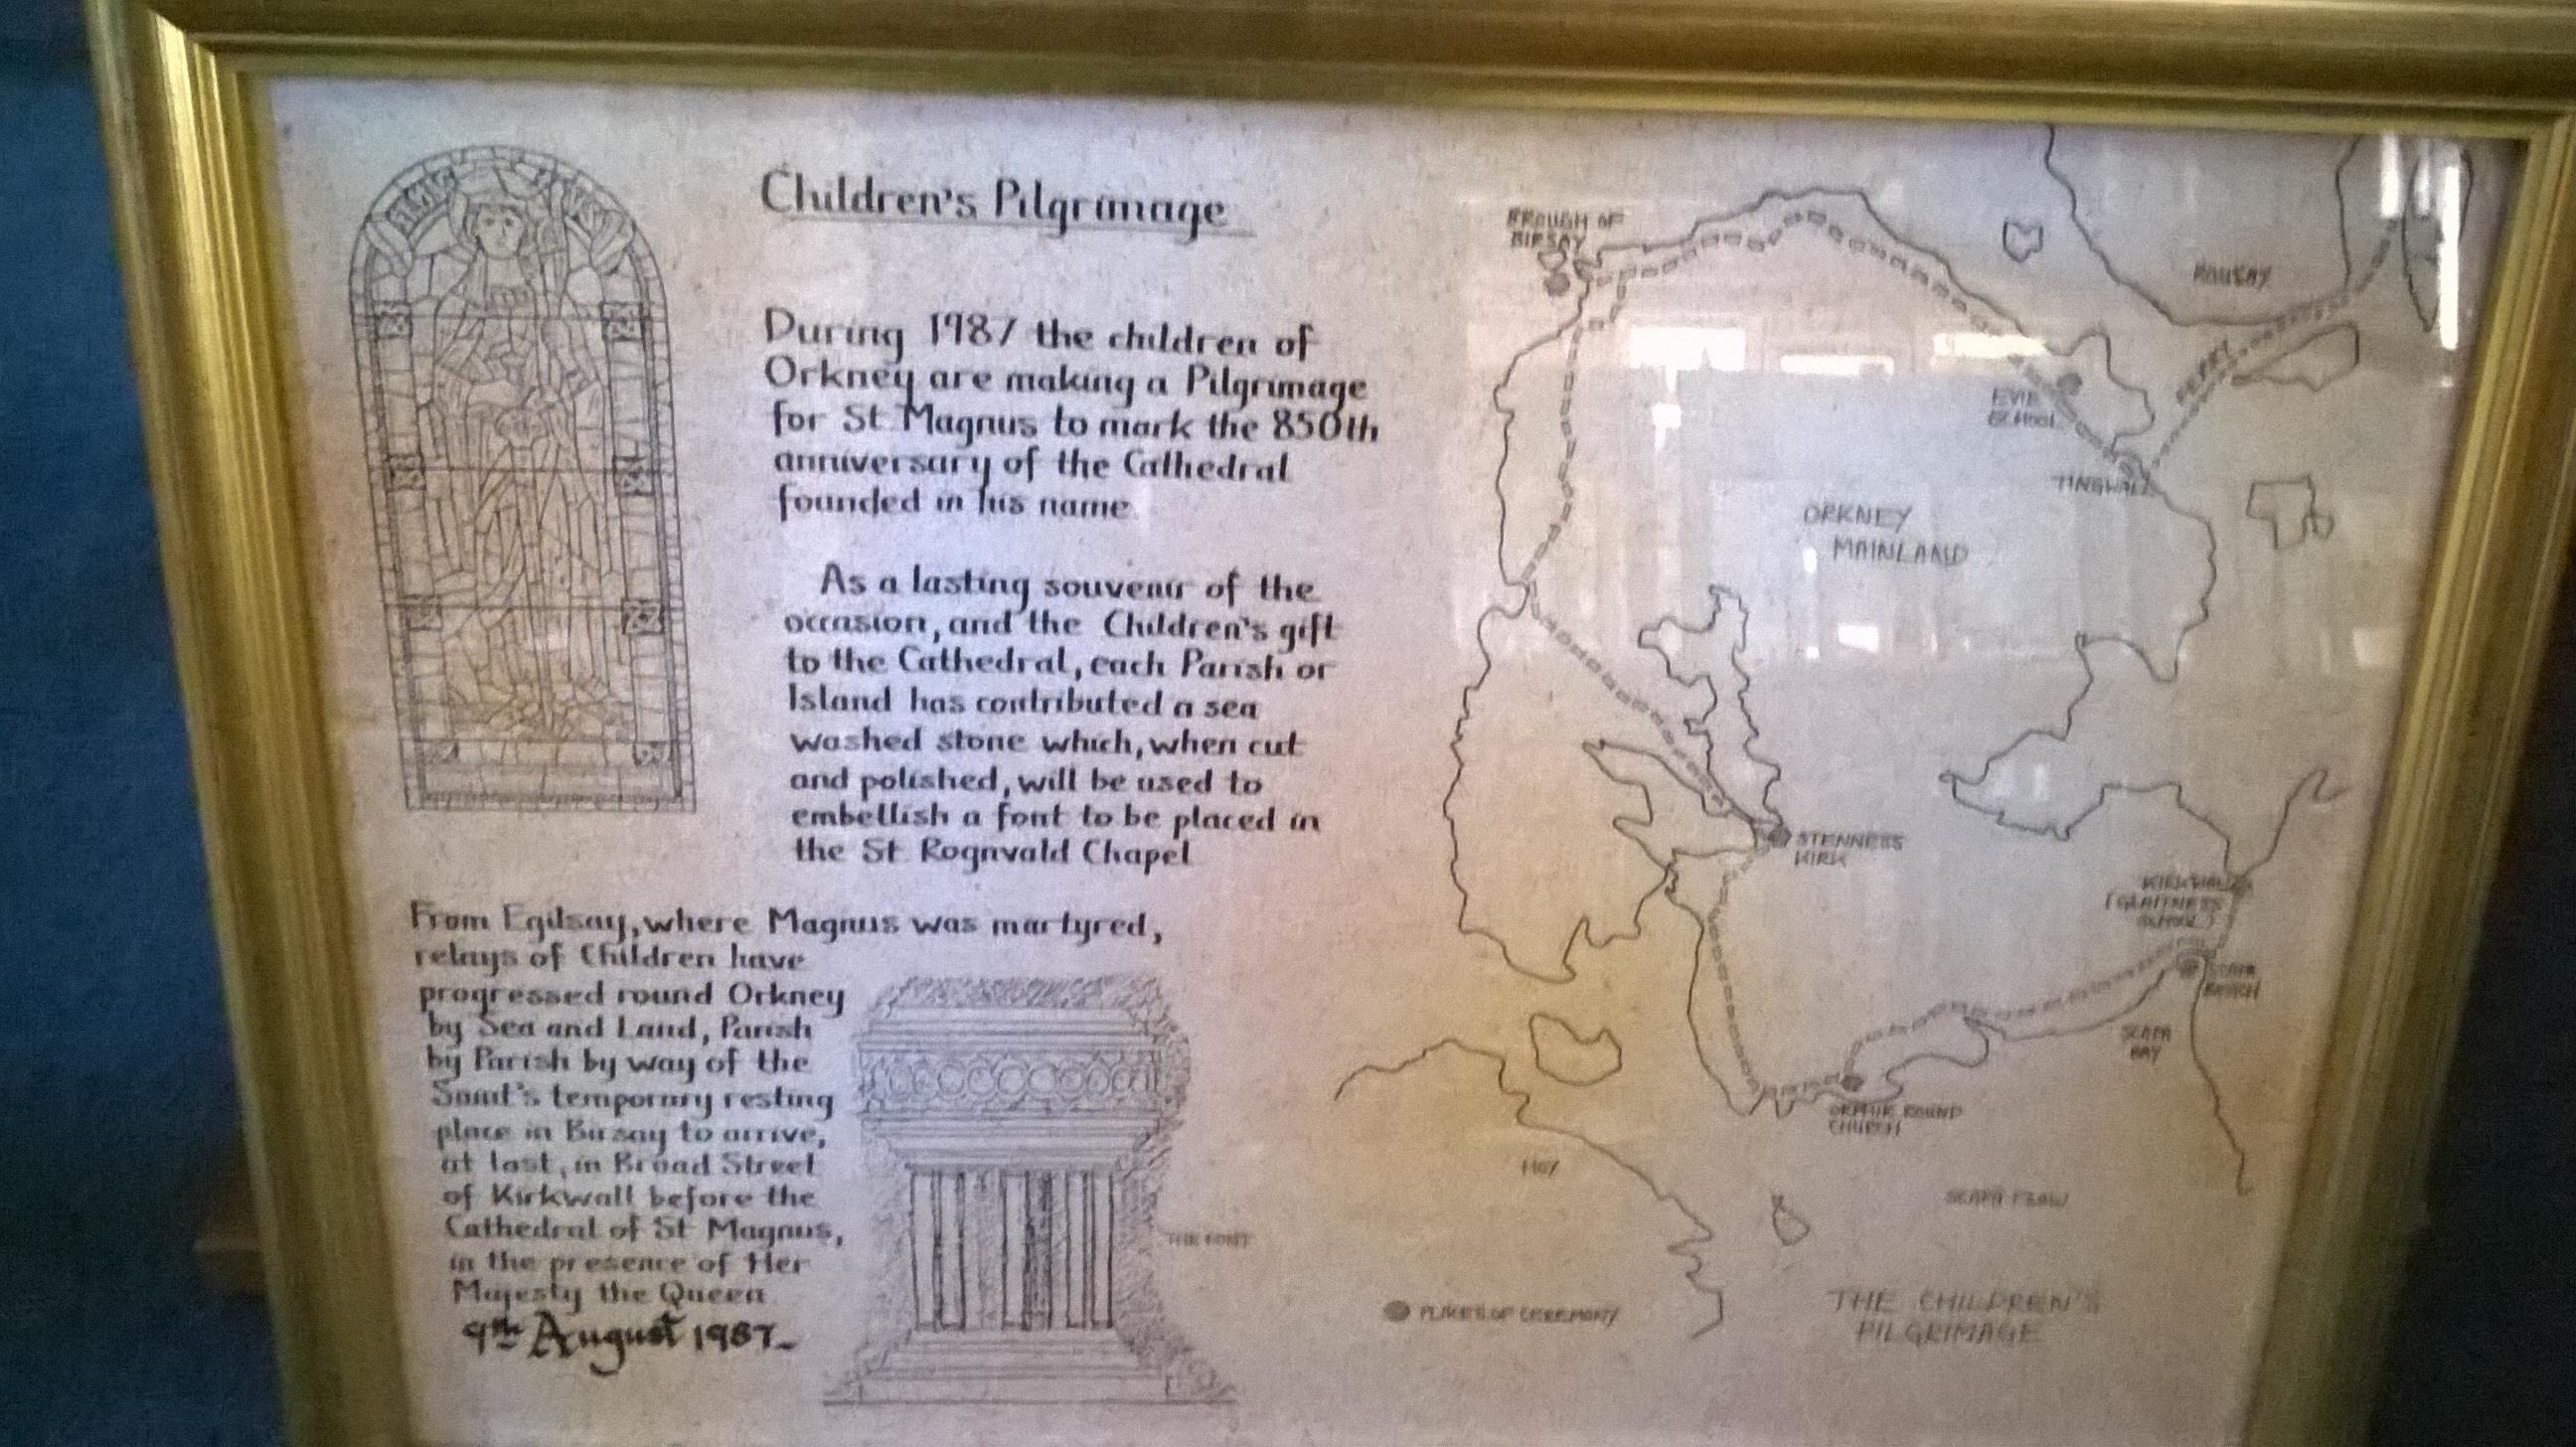 Children's Pilgrimage
During 1987 the children of
Orkney are making a Pilgrimage
for St Magnus to mark the 850th
anniversary of the Cathedral
founded in his name
As a lasting souvenir of the
occasion, and the Children's gift
to the Cathedral, each Parish or
Island has contributed a sea
washed stone which, when cut
and polished, will be used to
embellish a font to be placed in
the St Rognvald Chapel
From Egilsay, where Magnus was martyred,
relays of Children have
progressed round Orkney
by Sea and Land, Parish
by Parish by way of the
Saint's temporary resting
place in Birsay to arrive,
at last, in Broad Street
of Kirkwall before the
Cathedral of St Magnus,
in the presence of Her
Majesty the Queen
9th August 1987
THE FONT
BROUGH OF
BIRSAY
ROUSAY
FERRY
EVIE
SCHOOL
TINGWALL
ORKNEY
MAINLAND
STENNESS
KIRK
KIRKWALL
(GLAITNESS
SCHOOL)
SCAPA
BEACH
SCAPA
BAY
ORPHIR ROUND
CHURCH
HOY
SCAPA FLOW
PLACES OF CEREMONY
THE CHILDREN'S
PILGRIMAGE